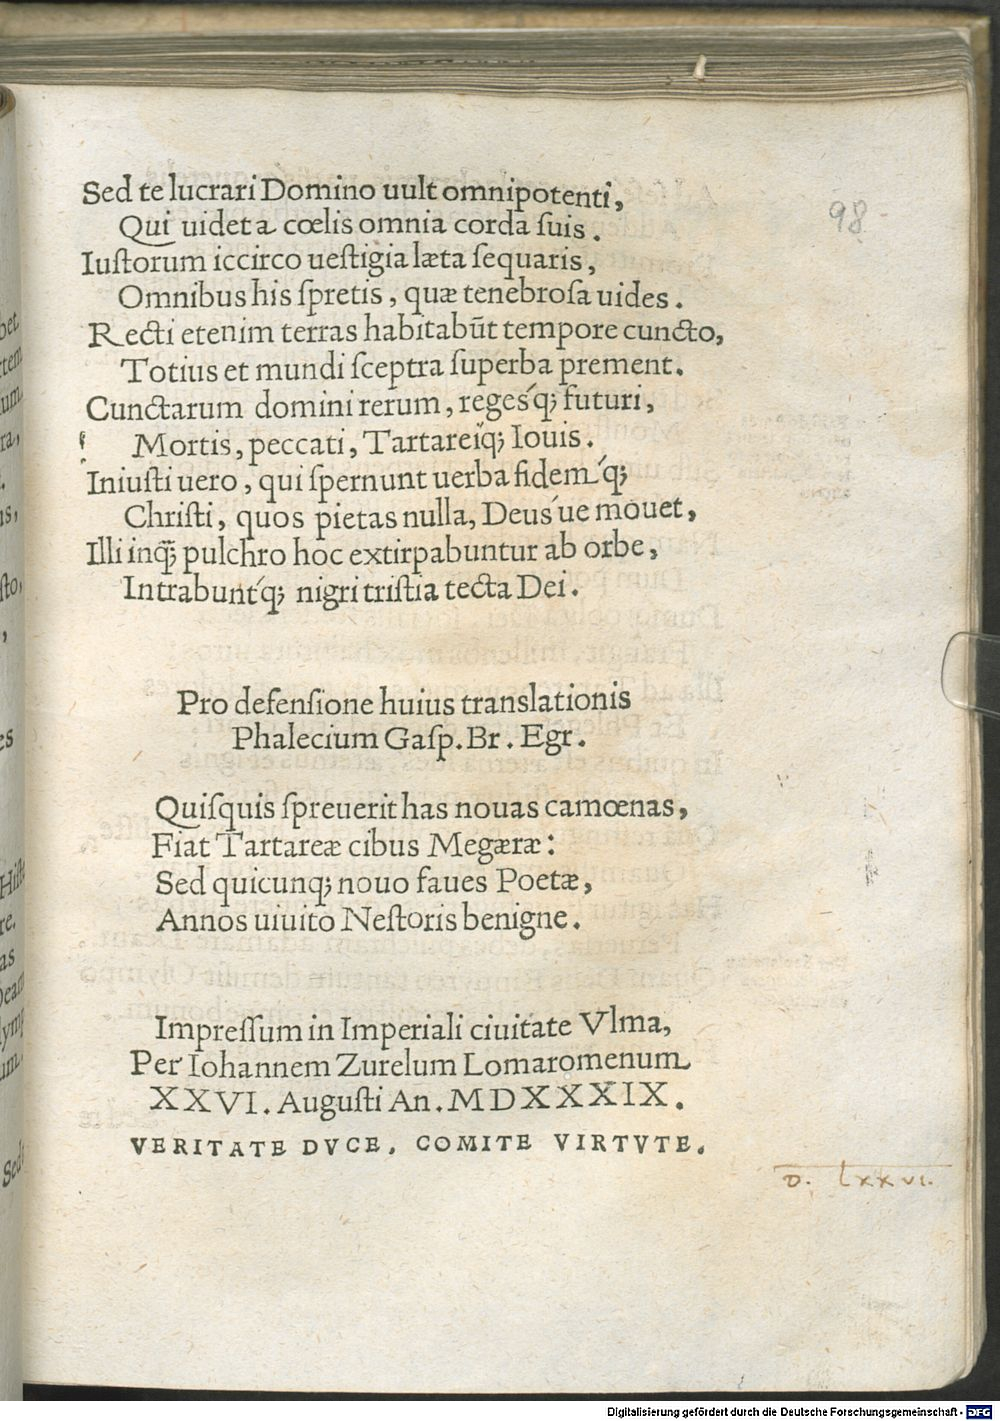 98
Sed te lucrari Domino uult omnipotenti,
Qui uidet a cœlis omnia corda ſuis.
Iuſtorum iccirco ueſtigia læta ſequaris,
Omnibus his ſpretis, quæ tenebroſa uides.
Recti etenim terras habitabūt tempore cuncto,
Totius et mundi ſceptra ſuperba prement.
Cunctarum domini rerum, reges'q; futuri,
Mortis, peccati, Tartarei'q; Iouis.
Iniuſti uero, qui ſpernunt uerba fidem'q;
Chriſti, quos pietas nulla, Deus'ue mouet,
Illi inq̃; pulchro hoc extirpabuntur ab orbe,
Intrabunt'q; nigri triſtia tecta Dei.
Pro defenſione huius translationis
Phalecium Gaſp. Br. Egr.
Quiſquis ſpreuerit has nouas camœnas,
Fiat Tartareæ cibus Megæræ:
Sed quicunq; nouo faues Poetæ,
Annos uiuito Neſtoris benigne.
Impreſſum in Imperiali ciuitate Vlma,
Per Iohannem Zurelum Lomaromenum
XXVI. Auguſti An. MDXXXIX.
VERITATE DVCE, COMITE VIRTVTE.
D. Lxxvi.
Digitalisierung gefördert durch die Deutsche Forschungsgemeinschaft - DFG